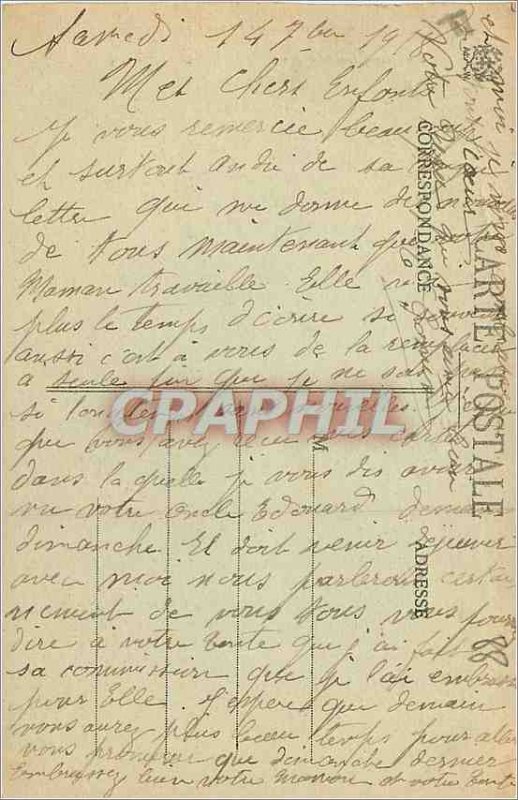 Samedi 14 7bre 1918
Mes Chers Enfants
Je vous remercie beaucoup
et surtout André de sa
lettre qui me donne de
de tous maintenant que
Maman travaille. Elle n'a
plus le temps d'écrire si souvent
aussi c'est à vous de la remplacer
a seule fin que je ne sois
si longtemps sans nouvelles
que vous avez reçu mes cartes
dans la quelle je vous dis avoir
vu votre oncle Edouard demain
dimanche Il doit venir déjeuner
avec moi nous parlerons certai
nement de vous tous vous pouvez
dire à votre tante que j'ai fait
sa commission que je l'ai embrassé
pour Elle. J'espère que demain
vous aurez plus beau temps pour aller
vous promener que dimanche dernier
Embrassez bien votre Maman et votre tante
et
cœur
Votre qui vous aime
CARTE POSTALE
CORRESPONDANCE
ADRESSE
M
88
CPARHIL